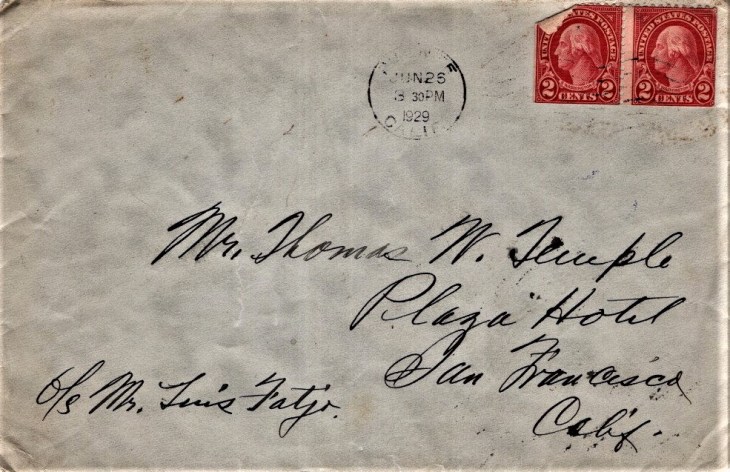 UNITED STATES POSTAGE
2 CENTS 2
UNITED STATES POSTAGE
2 CENTS 2
JUN 26
3 30 PM
1929
CALIF
Mr. Thomas W. Temple
Plaza Hotel
San Francisco
Calif.
c/o Mr. Luis Fatjo.